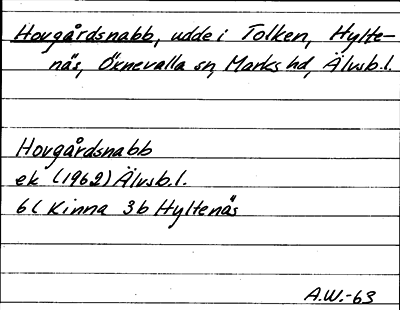 Hovgårdsnabb, udde i Tolken, Hylte-
näs, Öxnevalla sn, Marks hd, Älvsb.l.
Hovgårdsnabb
ek (1962) Älvsb.l.
6C Kinna 3b Hyltenäs
A.W.-63